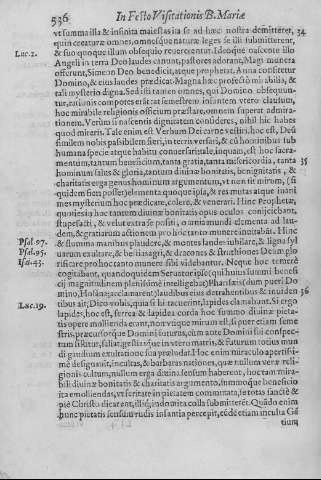 536 In Festo Visitationis B. Mariæ
vt summa illa & infinita maiestas ita se ad hæc nostra demitteret, 34
quin creaturæ omnes, omnesque naturæ leges se illi submitterent,
Luc. 2. & suo quoque illam obsequio reuererentur. Ideoque nascente illo
Angeli in terra Deo laudes canunt, pastores adorant, Magi munera
offerunt, Simeon Deo benedicit, atque prophetat, Anna confitetur
Domino, & eius laudes prædicat. Magna hæc profectò mirabilia, &
tali mysterio digna. Sed isti tamen omnes, qui Domico obsequun-
tur, rationis compotes erant: at semestrem infantem vtero clausum,
hoc mirabile religionis officium præstare, omnem superat admira-
tionem. Verùm si nascentis dignitatem consideres, nihil hic habes
quod mireris. Tale enim est Verbum Dei carne vestiri, hoc est, Deũ
similem nobis passibilem fieri, in terris versari, & cũ hominibus sub
humana specie atque habitu conuersari: tale, inquam, est, hoc sacra-
mentum, tantum beneficium, tanta gratia, tanta misericordia, tanta 35
hominum salus & gloria, tantum diuinæ bonitatis, benignitatis, &
charitatis erga genus humanum argumentum, vt non sit mirum, (si
quidem fieri posset) elementa quoque ipsa, & res mutas atque inani-
mes mysterium hoc prædicare, colere, & venerari. Hinc Prophetæ,
quoties in hac tantum diuinæ bonitatis opus oculos conijciebant,
stupefacti, & velut extra se positi, omnia mundi elementa ad lau-
dem, & gratiarum actionem pro hoc tanto munere inuitabāt. Hinc
Psal. 97. & flumina manibus plaudere, & montes lætādo iubilare, & ligna syl
Psal. 95. uarum exultare, & bestias agri, & dracones & struthiones Deum glo
Isa. 43. rificare pro hoc tanto munere sibi videbantur. Neque hoc temerè
cogitabant, quandoquidem Seruator ipse (qui huius summi benefi
cij magnitudinem plenissimè intelligebat) Pharisæis dum pueri Do-
mino, Hosanna, acclamarent, laudibus eius detrahentibus & inuiden 36
Luc. 19. tibus ait; Dico vobis, quia si hi tacuerint, lapides clamabunt. Si ergo
lapides, hoc est, ferrea & lapidea corda hoc summo diuinæ pieta
tis opere mollienda erant, non vsque mirum est, si puer etiam seme
stris, præcursorque Domini futurus, cùm ante Domini sui conspec-
tum sistitur, saliat, gestiatque in vtero matris, & futurum totius mun
di gaudium exultatione sua præludat. Hoc enim miraculo apertissi-
mè designauit, incultas, & barbaras nationes, quæ nullum veræ reli-
gionis cultum, nullum erga diuina sensum haberent, hoc tam mira-
bili diuinæ bonitatis & charitatis argumento, summoque beneficio
ita emolliendas, vt feritate in pietatem commutata, se totas sanctè &
piè Christo dicarent, illique indomita colla submitterēt. Quādo enim
hunc pietatis sensum rudis infantia percepit, cùr etiam inculta Gē
tium